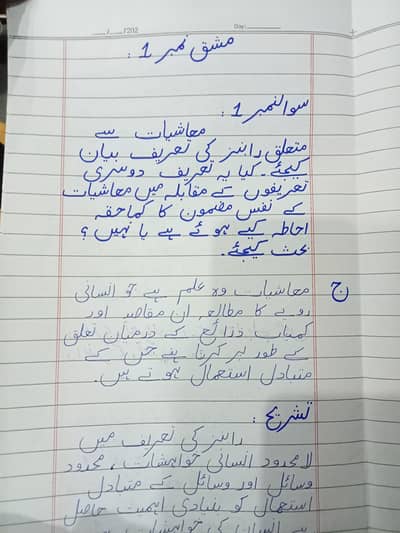 ___/___/202   Day:
مشق نمبر 1 :
سوال نمبر 1 :
معاشیات سے
متعلق رابنز کی تعریف بیان
کیجئے۔ کیا یہ تعریف دوسری
تعریفوں کے مقابلہ میں معاشیات
کے نفس مضمون کا کماحقہ
احاطہ کیے ہوئے ہے یا نہیں؟
بحث کیجئے۔
ج معاشیات وہ علم ہے جو انسانی
رویے کا مطالعہ ان مقاصد اور
کمیاب ذرائع کے درمیان تعلق
کے طور پر کرتا ہے جن کے
متبادل استعمال ہوتے ہیں۔
تشریح :
رابنز کی تعریف میں
لامحدود انسانی خواہشات، محدود
وسائل اور وسائل کے متبادل
استعمال کو بنیادی اہمیت حاصل
ہے انسان کی خواہشات